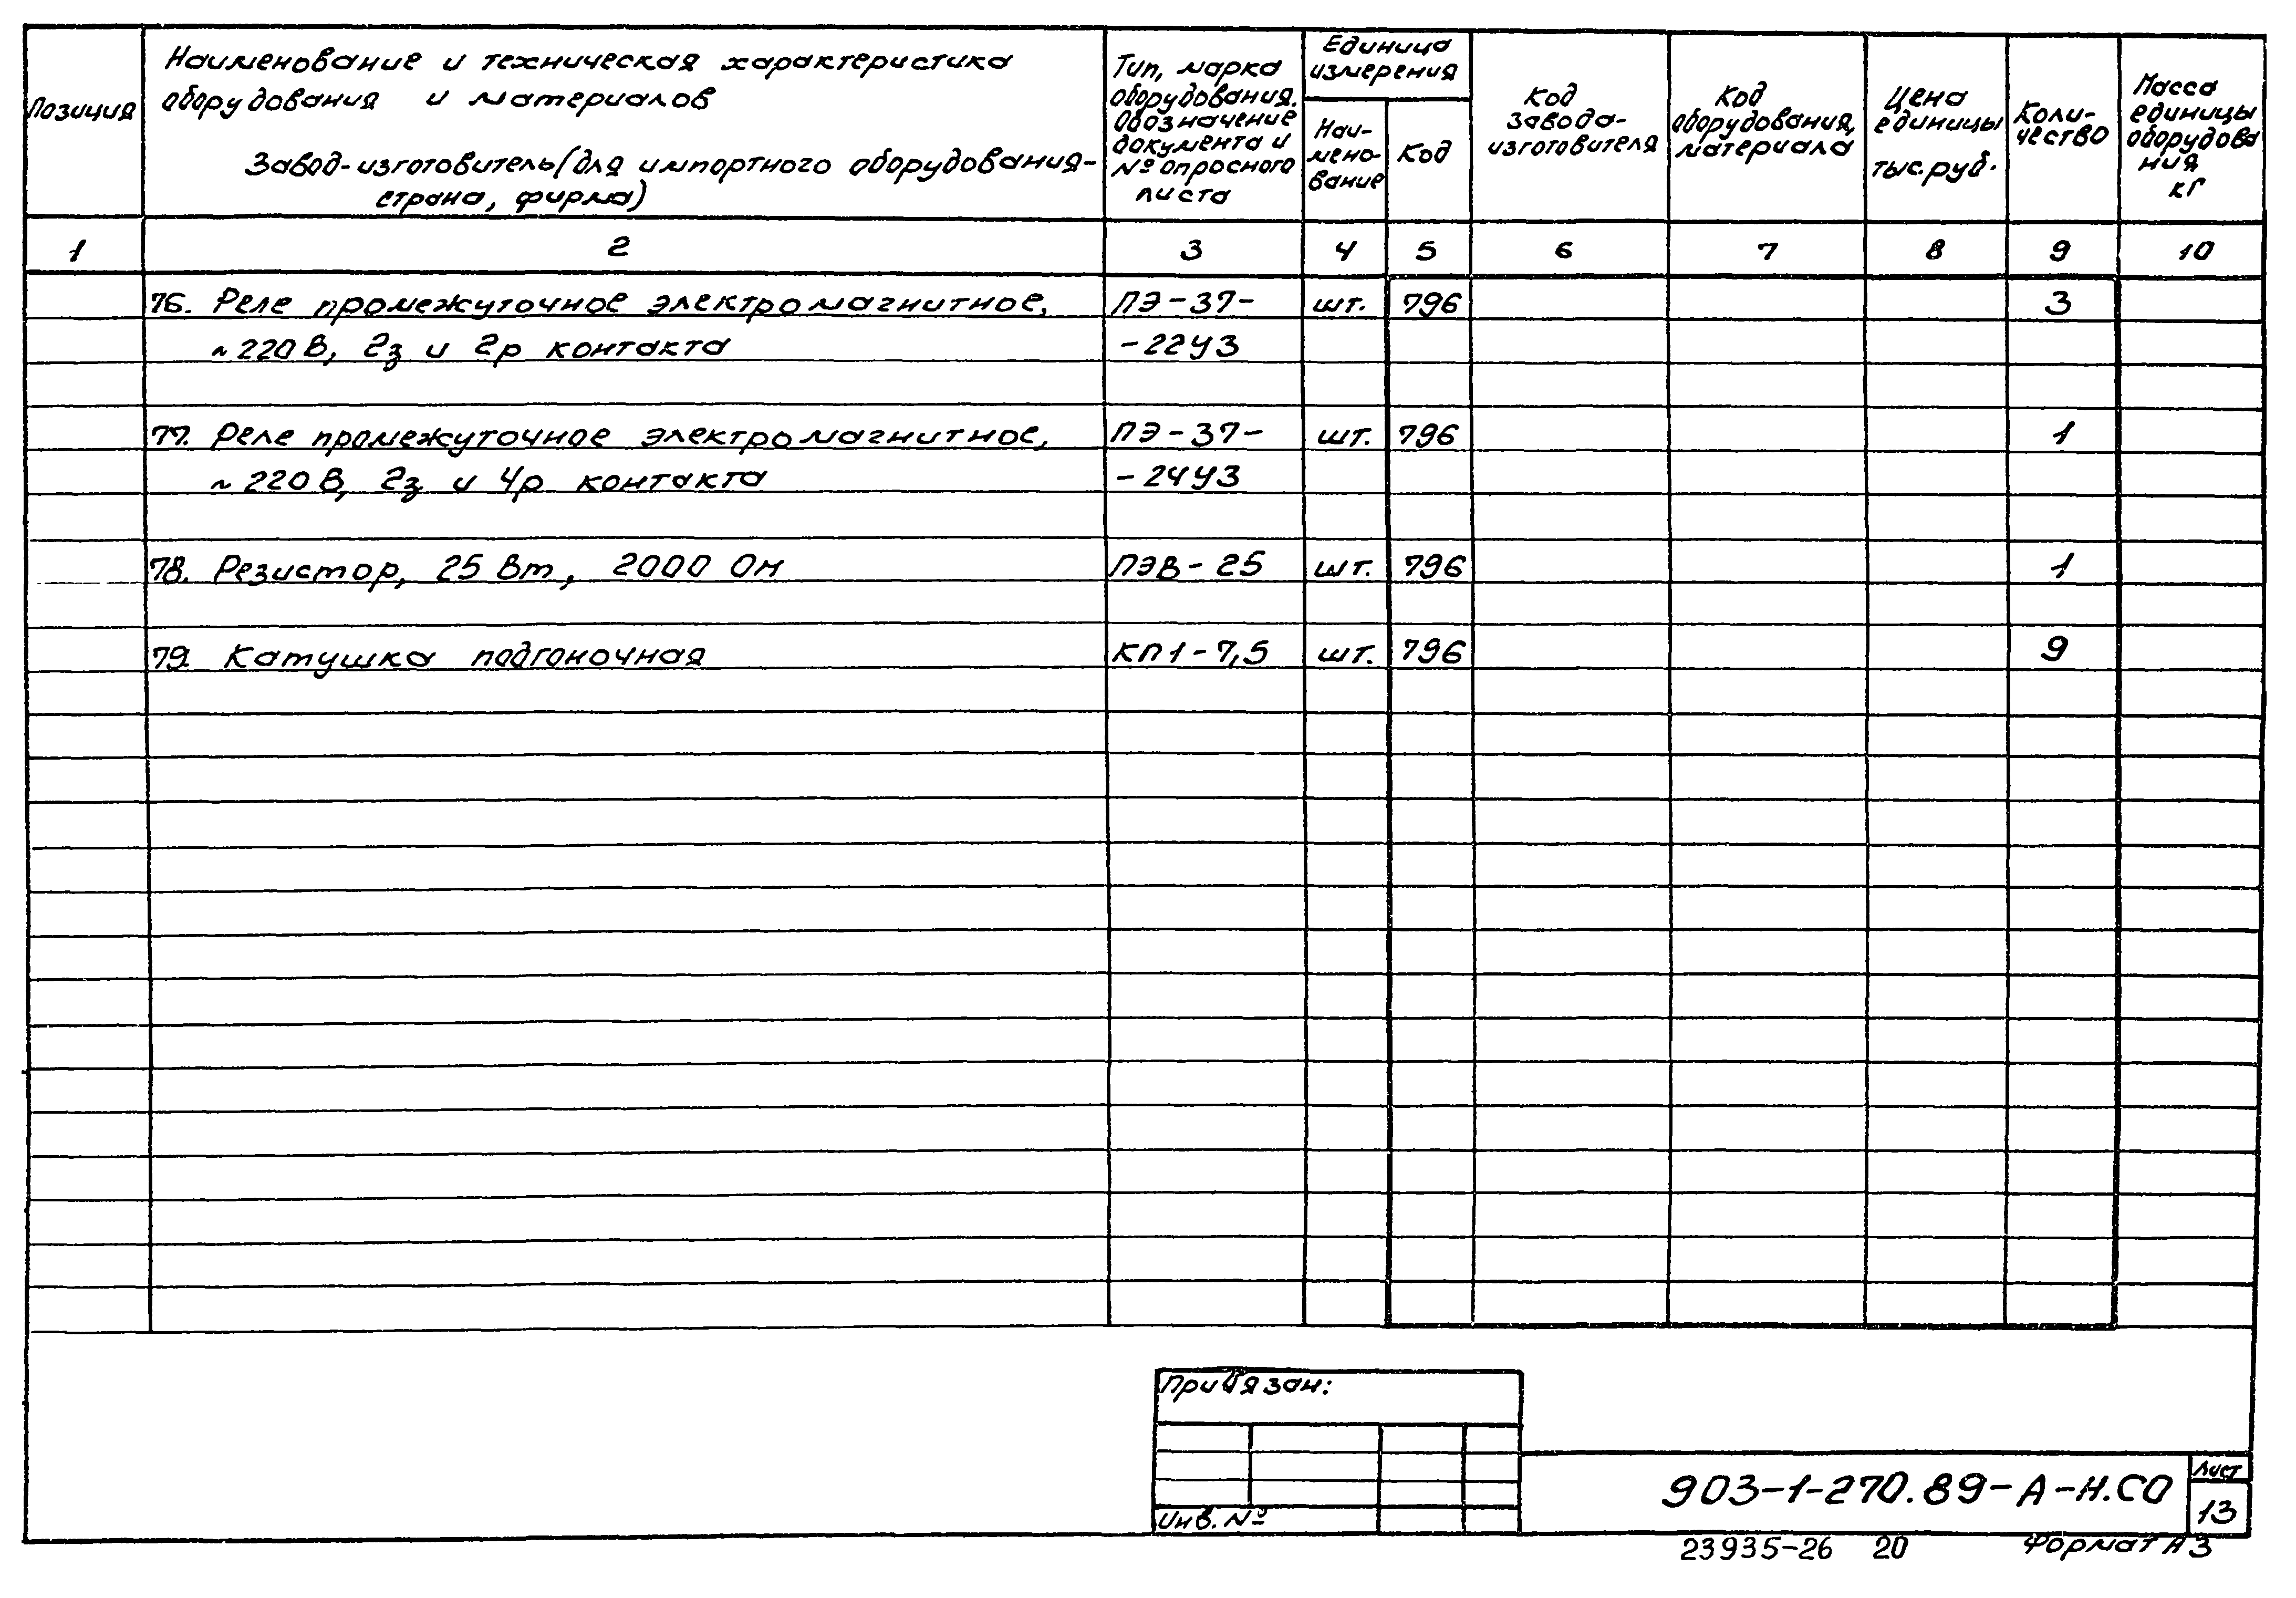 Позиция
Наименование и техническая характеристика
оборудования и материалов
Завод-изготовитель (для импортного оборудования-
страна, фирма)
Тип, марка
оборудования.
Обозначение
документа и
№ опросного
листа
Единица
измерения
Наи-
мено-
вание
Код
Код
завода-
изготовителя
Код
оборудования,
материала
Цена
единицы
тыс. руб.
Коли-
чество
Масса
единицы
оборудова
ния
кг
1 2 3 4 5 6 7 8 9 10
76. Реле промежуточное электромагнитное, ПЭ-37- шт. 796 3
~220 В, 2з и 2р контакта -22У3
77. Реле промежуточное электромагнитное, ПЭ-37- шт. 796 1
~220 В, 2з и 4р контакта -24У3
78. Резистор, 25 Вт, 2000 Ом ПЭВ-25 шт. 796 1
79. Катушка подгоночная КП1-7,5 шт. 796 9
Привязан:
Инв. №
903-1-270.89-А-Н.СО
Лист
13
23935-26 20 Формат А3